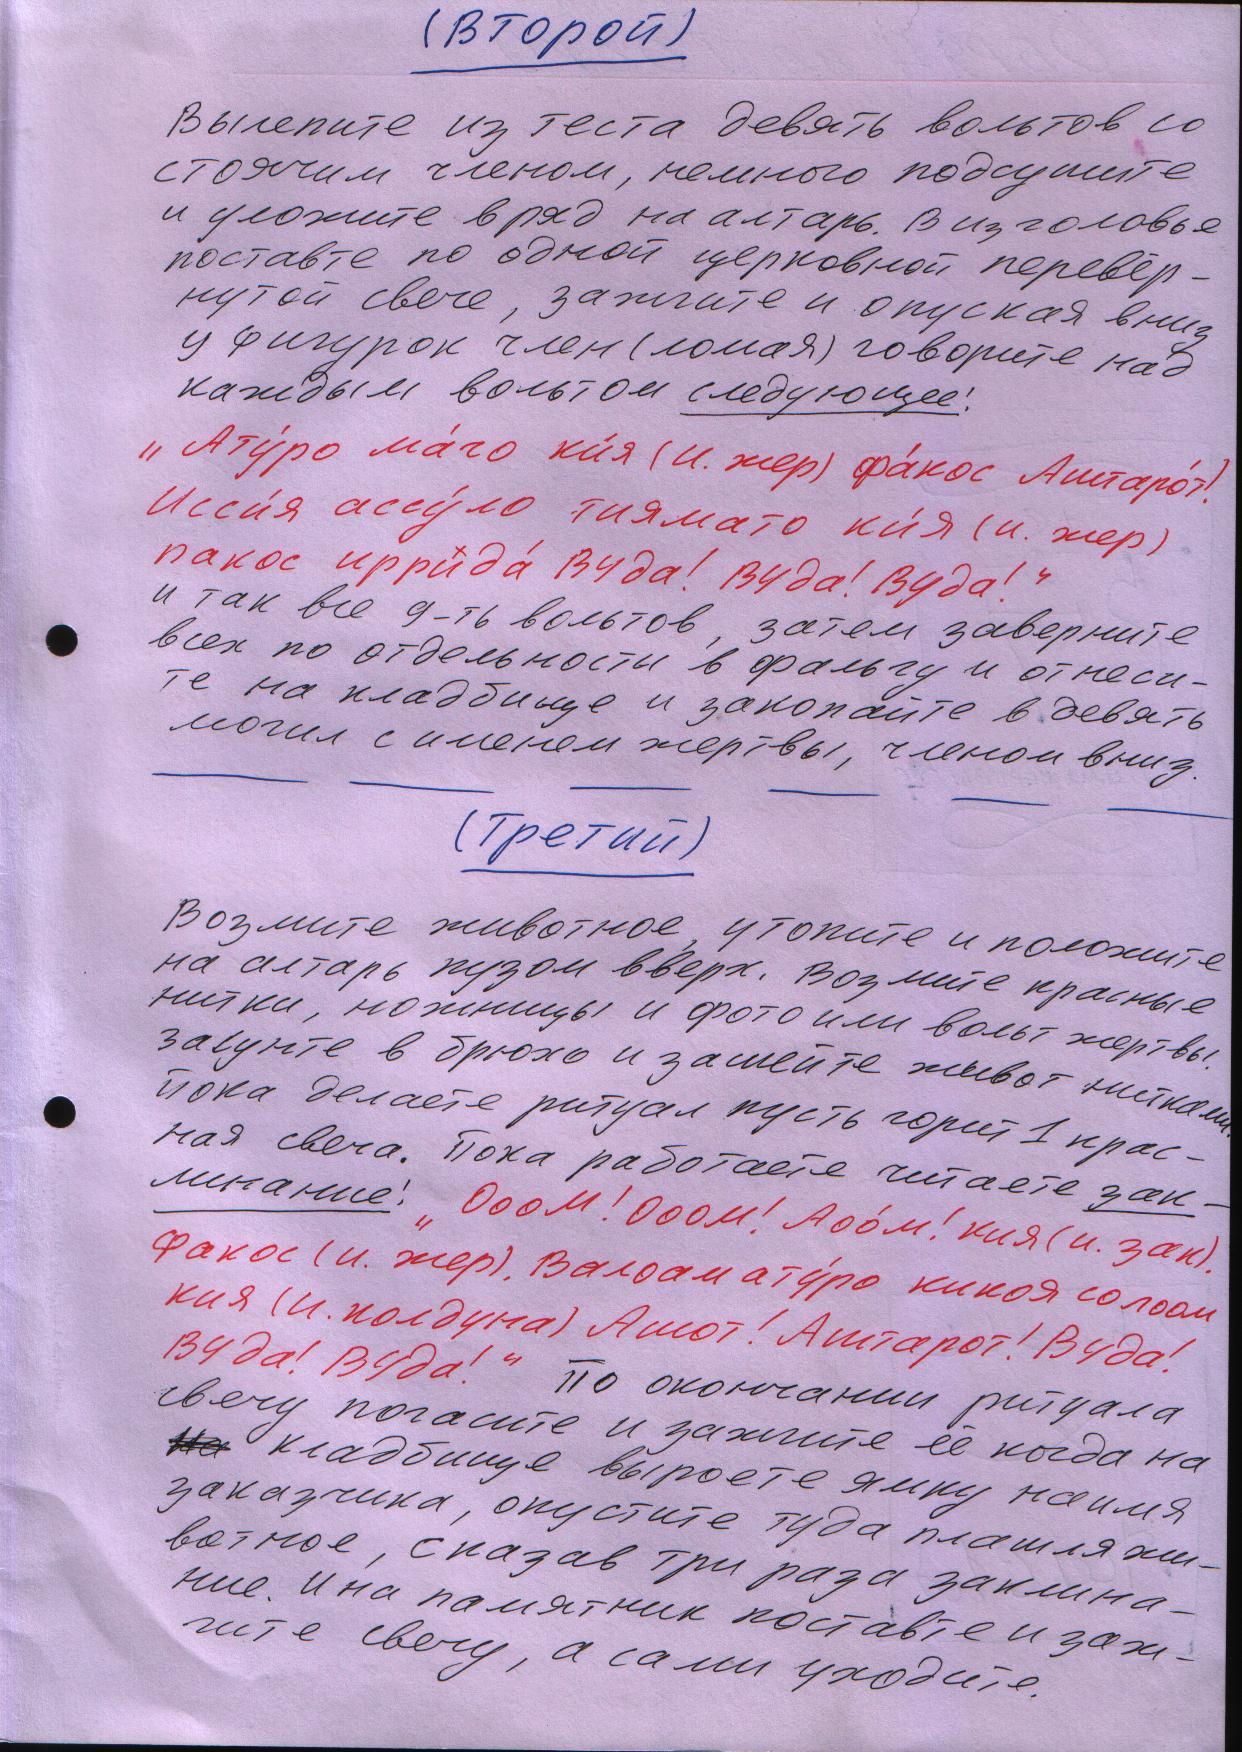 (Второй)
Вылепите из теста девять вольтов со
стоячим членом, немного подсушите
и уложите в ряд на алтарь. В изголовье
поставте по одной церковной перевёр-
нутой свече, зажгите и опуская вниз
у фигурок член (ломая) говорите над
каждым вольтом следующее:
„Ату́ро ма́чо ки́я (и. жер) фа́кос Аштаро́т!
Исси́я ассу́ло тиямато ки́я (и. жер)
пакос иррида́ Вуда! Вуда! Вуда!“
и так все 9-ть вольтов, затем заверните
всех по отдельности в фальгу и отнеси-
те на кладбище и закопайте в девять
могил с именем жертвы, членом вниз.
(Третий)
Возмите животное, утопите и положите
на алтарь пузом вверх. Возмите красные
нитки, ножницы и фото или вольт жертвы.
засунте в брюхо и зашейте живот нитками.
Пока делаете ритуал пусть горит 1 крас-
ная свеча. Пока работаете читаете зак-
линание: „ОооМ! Ооом! Аоо́м! кия (и. зак).
Факос (и. жер). Валоам ату́ро кикоя солоом
кия (и. колдуна) Ашот! Аштарот! Вуда!
Вуда! Вуда!“ По окончании ритуала
свечу погасите и зажгите её когда на
кладбище выроете ямку на имя
заказчика, опустите туда плашля жи-
вотное, сказав три раза заклина-
ние. И на памятник поставте и заж-
гите свечу, а сами уходите.